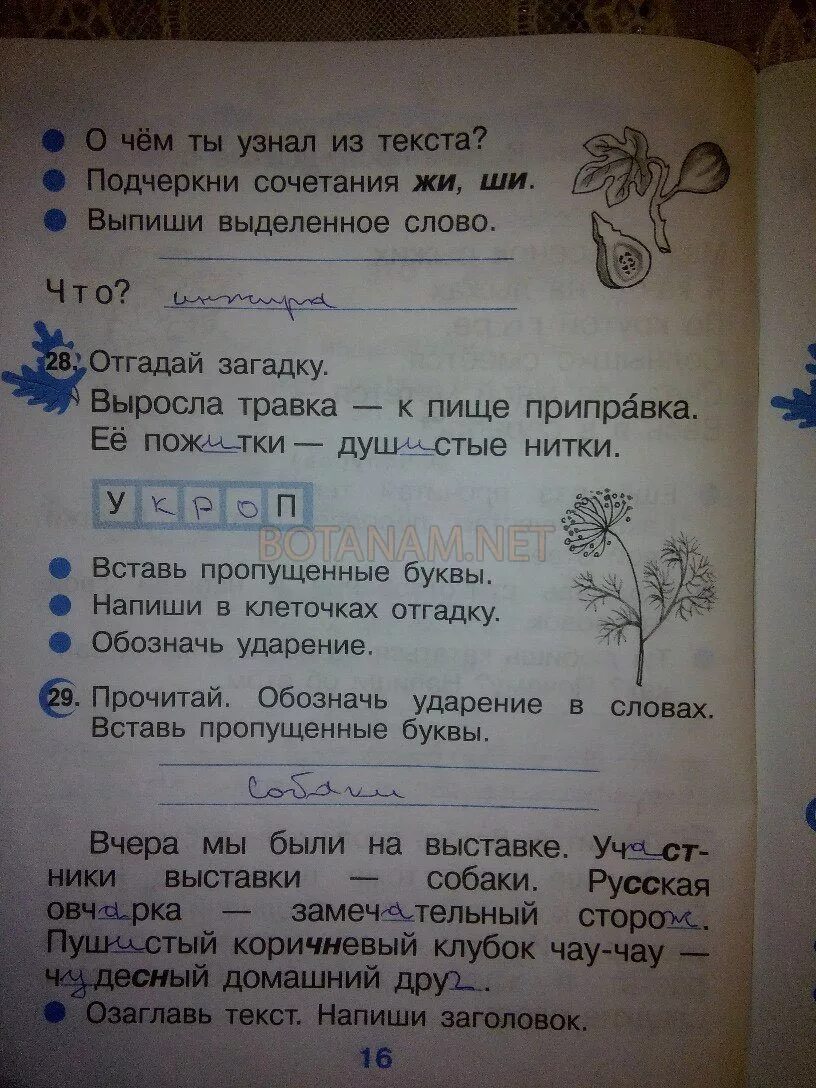 О чём ты узнал из текста?
Подчеркни сочетания жи, ши.
Выпиши выделенное слово.
Что? инжира
28. Отгадай загадку.
Выросла травка — к пище припрáвка.
Её пожитки — душистые нитки.
УКРОП
BOTANAM.NET
Вставь пропущенные буквы.
Напиши в клеточках отгадку.
Обозначь ударение.
29. Прочитай. Обозначь ударение в словах.
Вставь пропущенные буквы.
Собаки
Вчера мы были на выставке. Участ-
ники выставки — собаки. Русская
овчарка — замечательный сторож.
Пушистый коричневый клубок чау-чау —
чудесный домашний друг.
Озаглавь текст. Напиши заголовок.
16